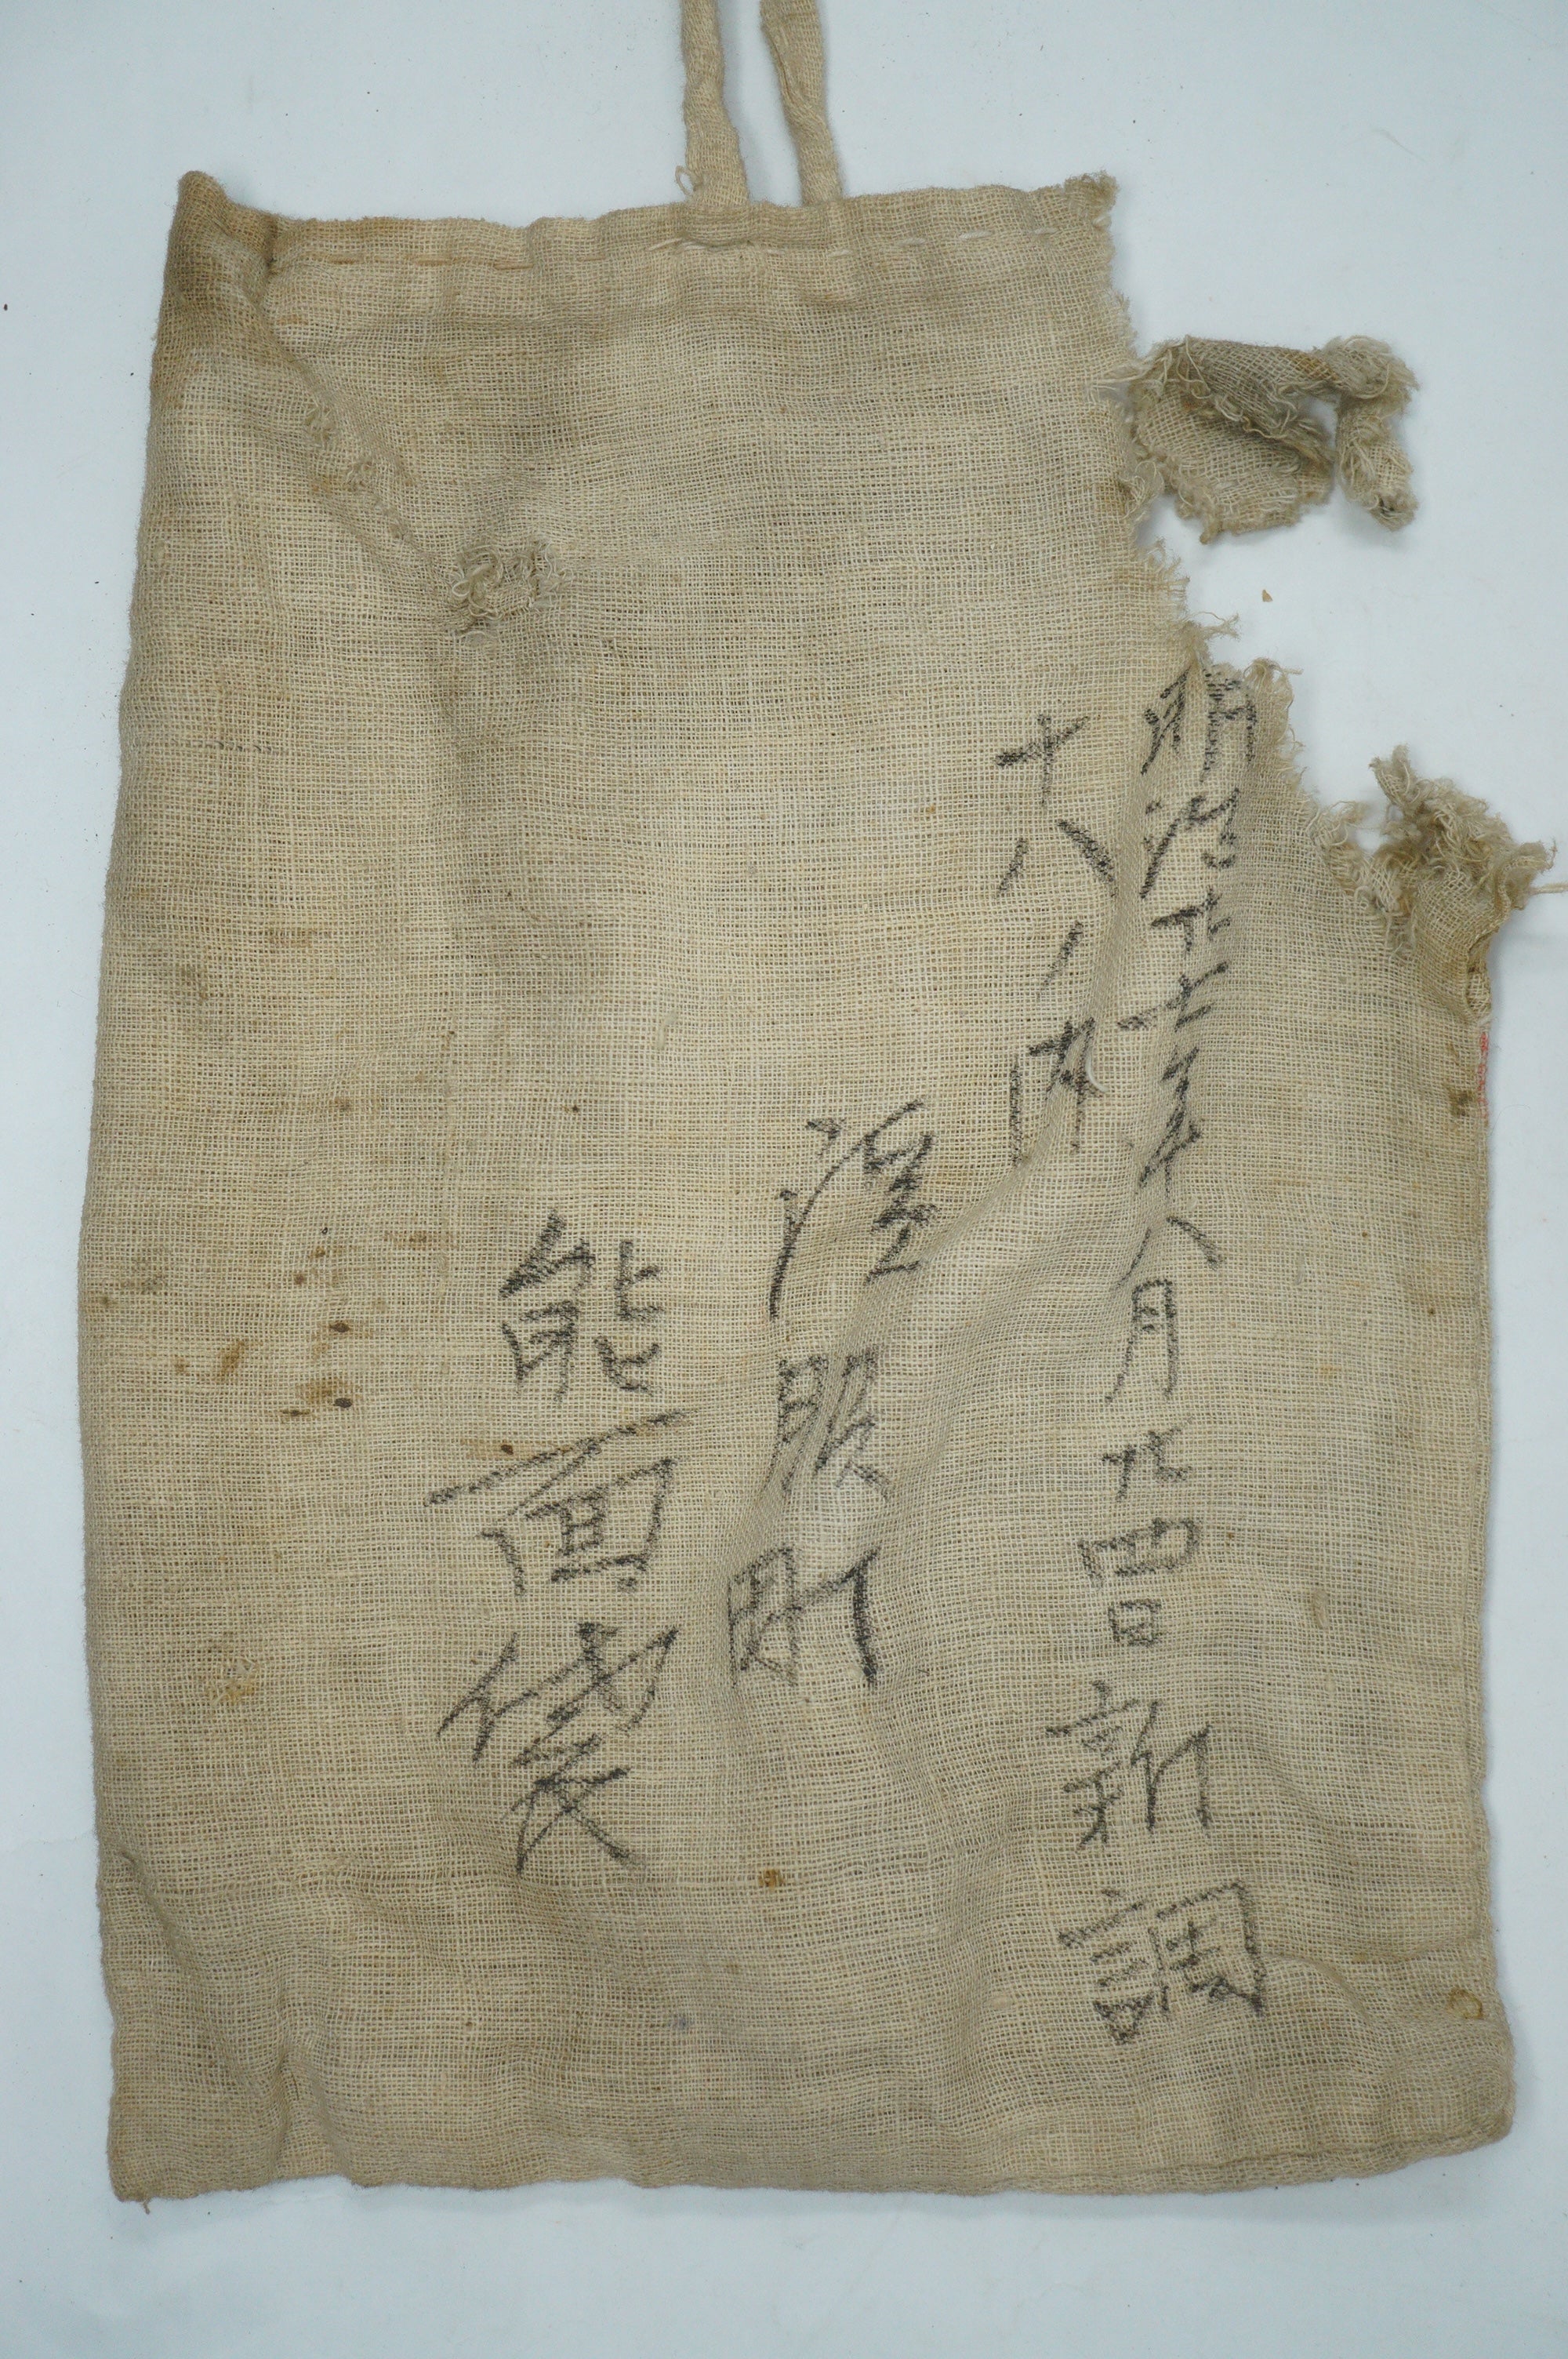 明治廿七年八月廿四日新調
十八ノ内
町
能面袋